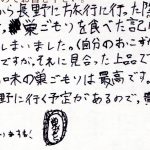 から長野に旅行に行った際
巣ごもりを食べた記
しまいました。(自分のおこず
ですが、それに見合った上品で
味の巣ごもりは最高です。
野に行く予定があるので、